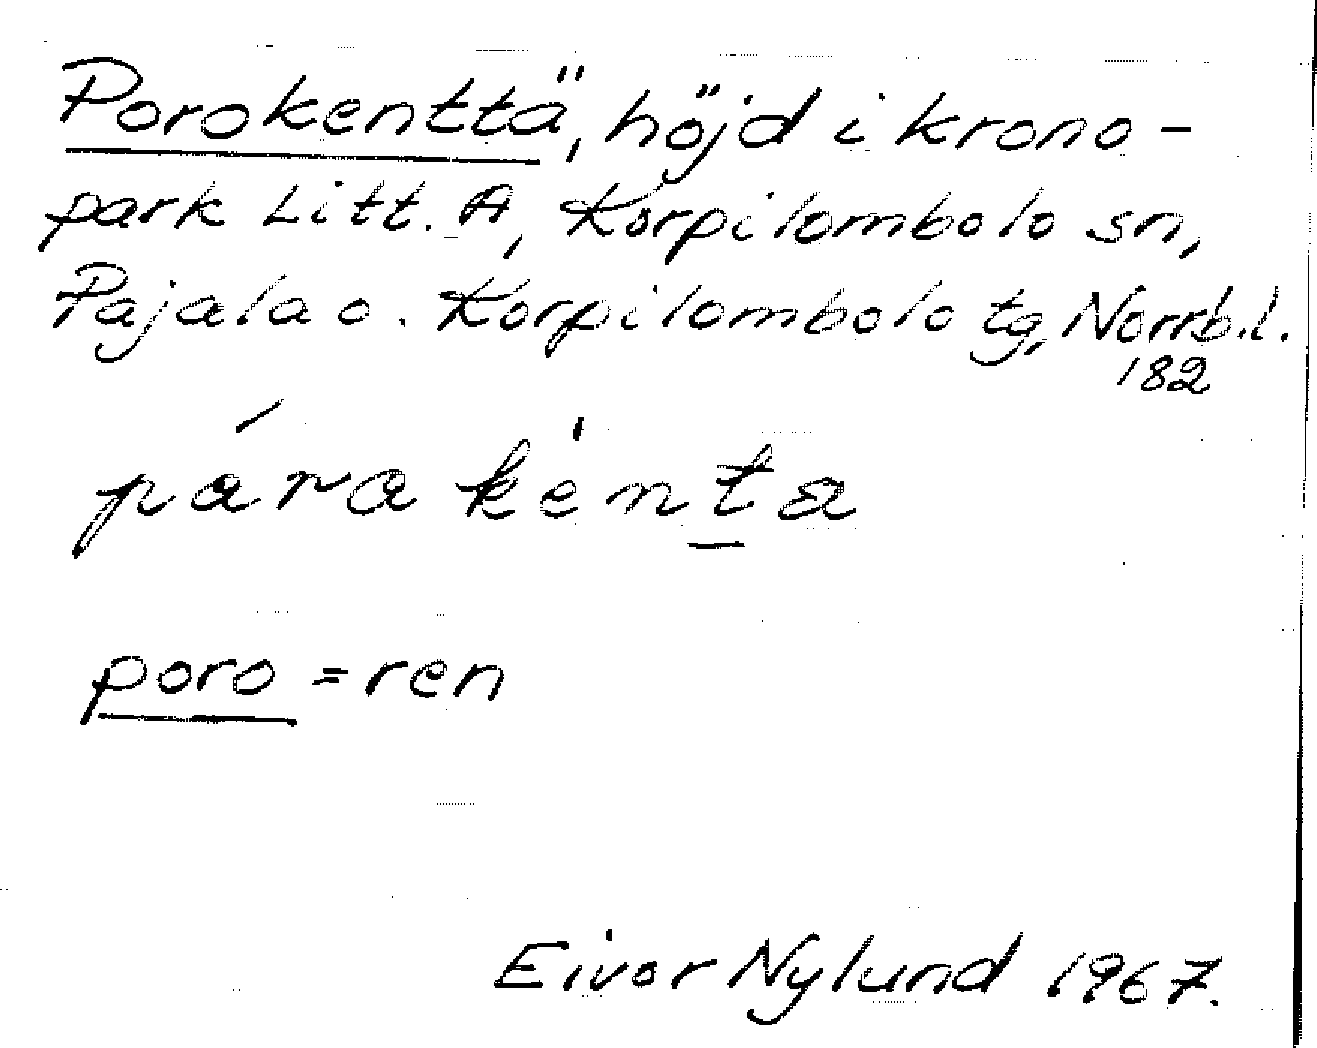 Porokenttä, höjd i krono-
park Litt. A, Korpilombolo sn,
Pajala o. Korpilombolo tg, Norrb. l.
182
párakènta
poro = ren
Eivor Nylund 1967.